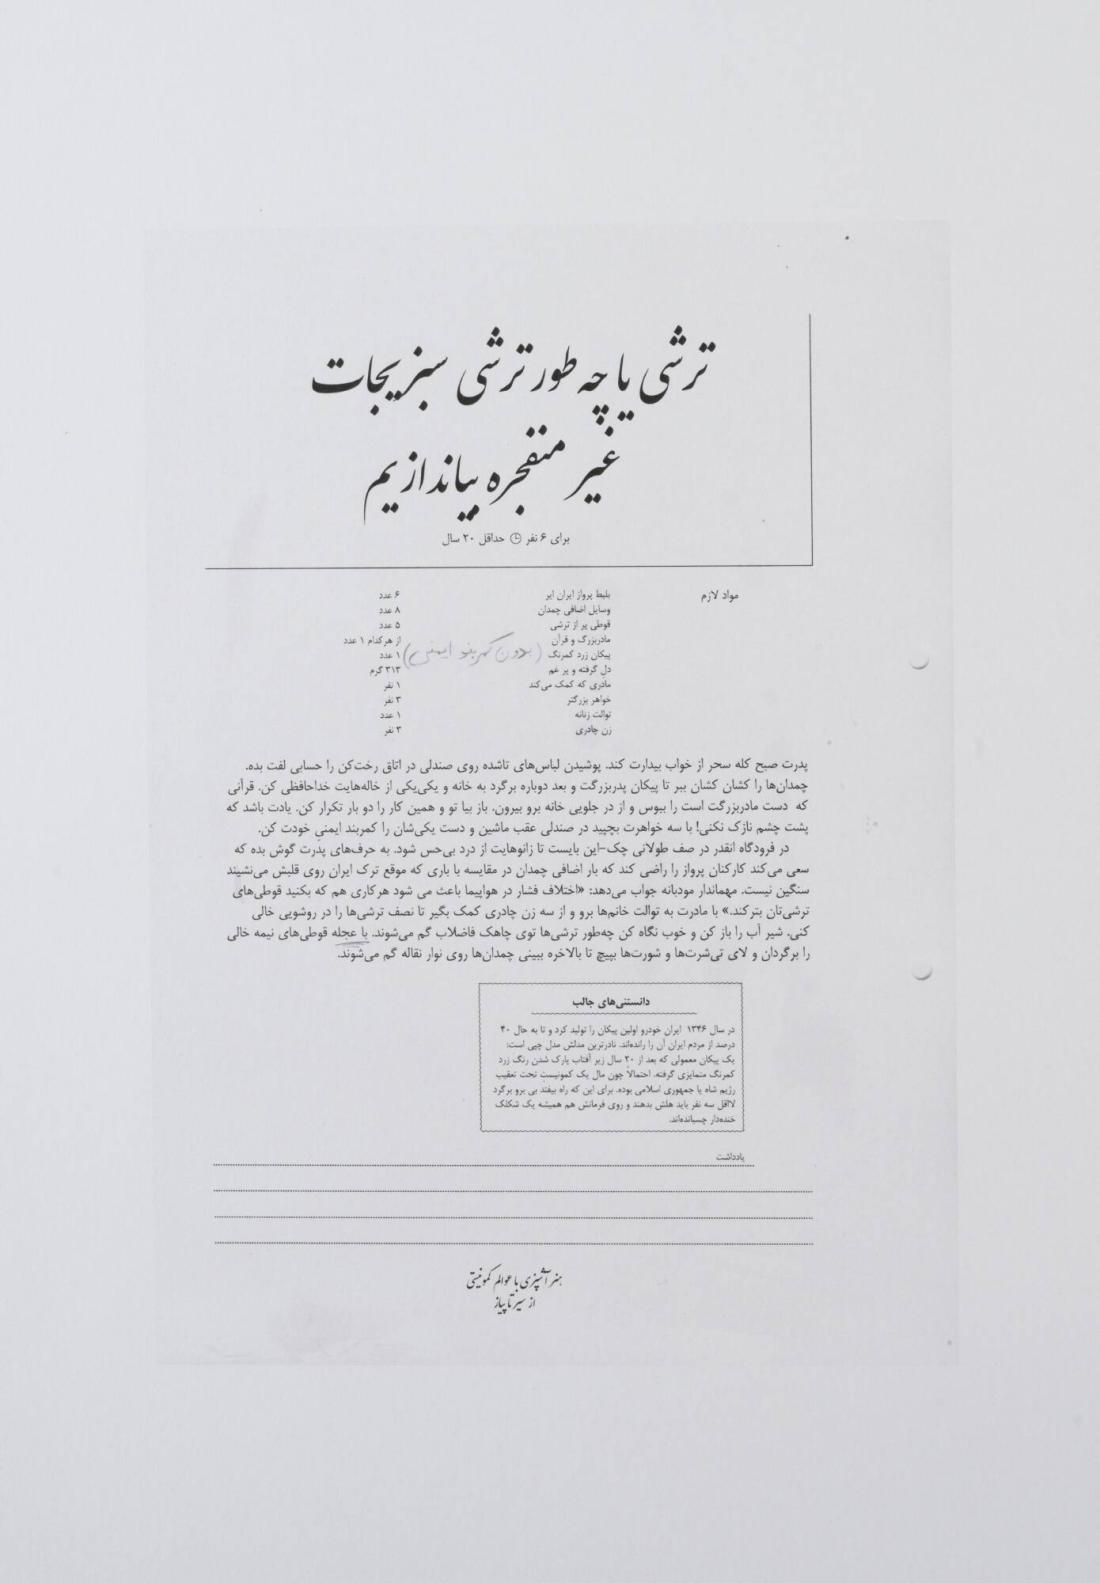 ترشی یا چه طور ترشی سبزیجات
غیر منفجره بیاندازیم
برای ۶ نفر حداقل ۲۰ سال
مواد لازم
بلیط پرواز ایران ایر ۶ عدد
وسایل اضافی چمدان ۸ عدد
قوطی پر از ترشی ۵ عدد
مادربزرگ و قرآن از هر کدام ۱ عدد
پیکان زرد کمرنگ (بدون کمربند ایمنی) ۱ عدد
دل گرفته و پر غم ۳۱۳ گرم
مادری که کمک می‌کند ۱ نفر
خواهر بزرگتر ۳ نفر
توالت زنانه ۱ عدد
زن چادری ۳ نفر
پدرت صبح کله سحر از خواب بیدارت کند. پوشیدن لباس‌های تاشده روی صندلی در اتاق رخت‌کن را حسابی لفت بده.
چمدان‌ها را کشان کشان ببر تا پیکان پدربزرگت و بعد دوباره برگرد به خانه و یکی‌یکی از خاله‌هایت خداحافظی کن. قرآنی
که دست مادربزرگت است را ببوس و از در جلویی خانه برو بیرون. باز بیا تو و همین کار را دو بار تکرار کن. یادت باشد که
پشت چشم نازک نکنی! با سه خواهرت بچپید در صندلی عقب ماشین و دست یکی‌شان را کمربند ایمنی خودت کن.
در فرودگاه انقدر در صف طولانی چک-این بایست تا زانوهایت از درد بی‌حس شود. به حرف‌های پدرت گوش بده که
سعی می‌کند کارکنان پرواز را راضی کند که بار اضافی چمدان در مقایسه با باری که موقع ترک ایران روی قلبش می‌نشیند
سنگین نیست. مهماندار مودبانه جواب می‌دهد: «اختلاف فشار در هواپیما باعث می شود هرکاری هم که بکنید قوطی‌های
ترشی‌تان بترکند.» با مادرت به توالت خانم‌ها برو و از سه زن چادری کمک بگیر تا نصف ترشی‌ها را در روشویی خالی
کنی. شیر آب را باز کن و خوب نگاه کن چه‌طور ترشی‌ها توی چاهک فاضلاب گم می‌شوند. با عجله قوطی‌های نیمه خالی
را برگردان و لای تی‌شرت‌ها و شورت‌ها بپیچ تا بالاخره ببینی چمدان‌ها روی نوار نقاله گم می‌شوند.
دانستنی‌های جالب
در سال ۱۳۴۶ ایران خودرو اولین پیکان را تولید کرد و تا به حال ۴۰
درصد از مردم ایران آن را رانده‌اند. نادرترین مدلش مدل چپی است:
یک پیکان معمولی که بعد از ۲۰ سال زیر آفتاب پارک شدن رنگ زرد
کمرنگ متمایزی گرفته. احتمالاً چون مال یک کمونیست تحت تعقیب
رژیم شاه یا جمهوری اسلامی بوده. برای این که راه بیفتد بی برو برگرد
لااقل سه نفر باید هلش بدهند و روی فرمانش هم همیشه یک شکلک
خنده‌دار چسبانده‌اند.
یادداشت
هنر آشپزی با عوالم کمونیستی
از سیر تا پیاز